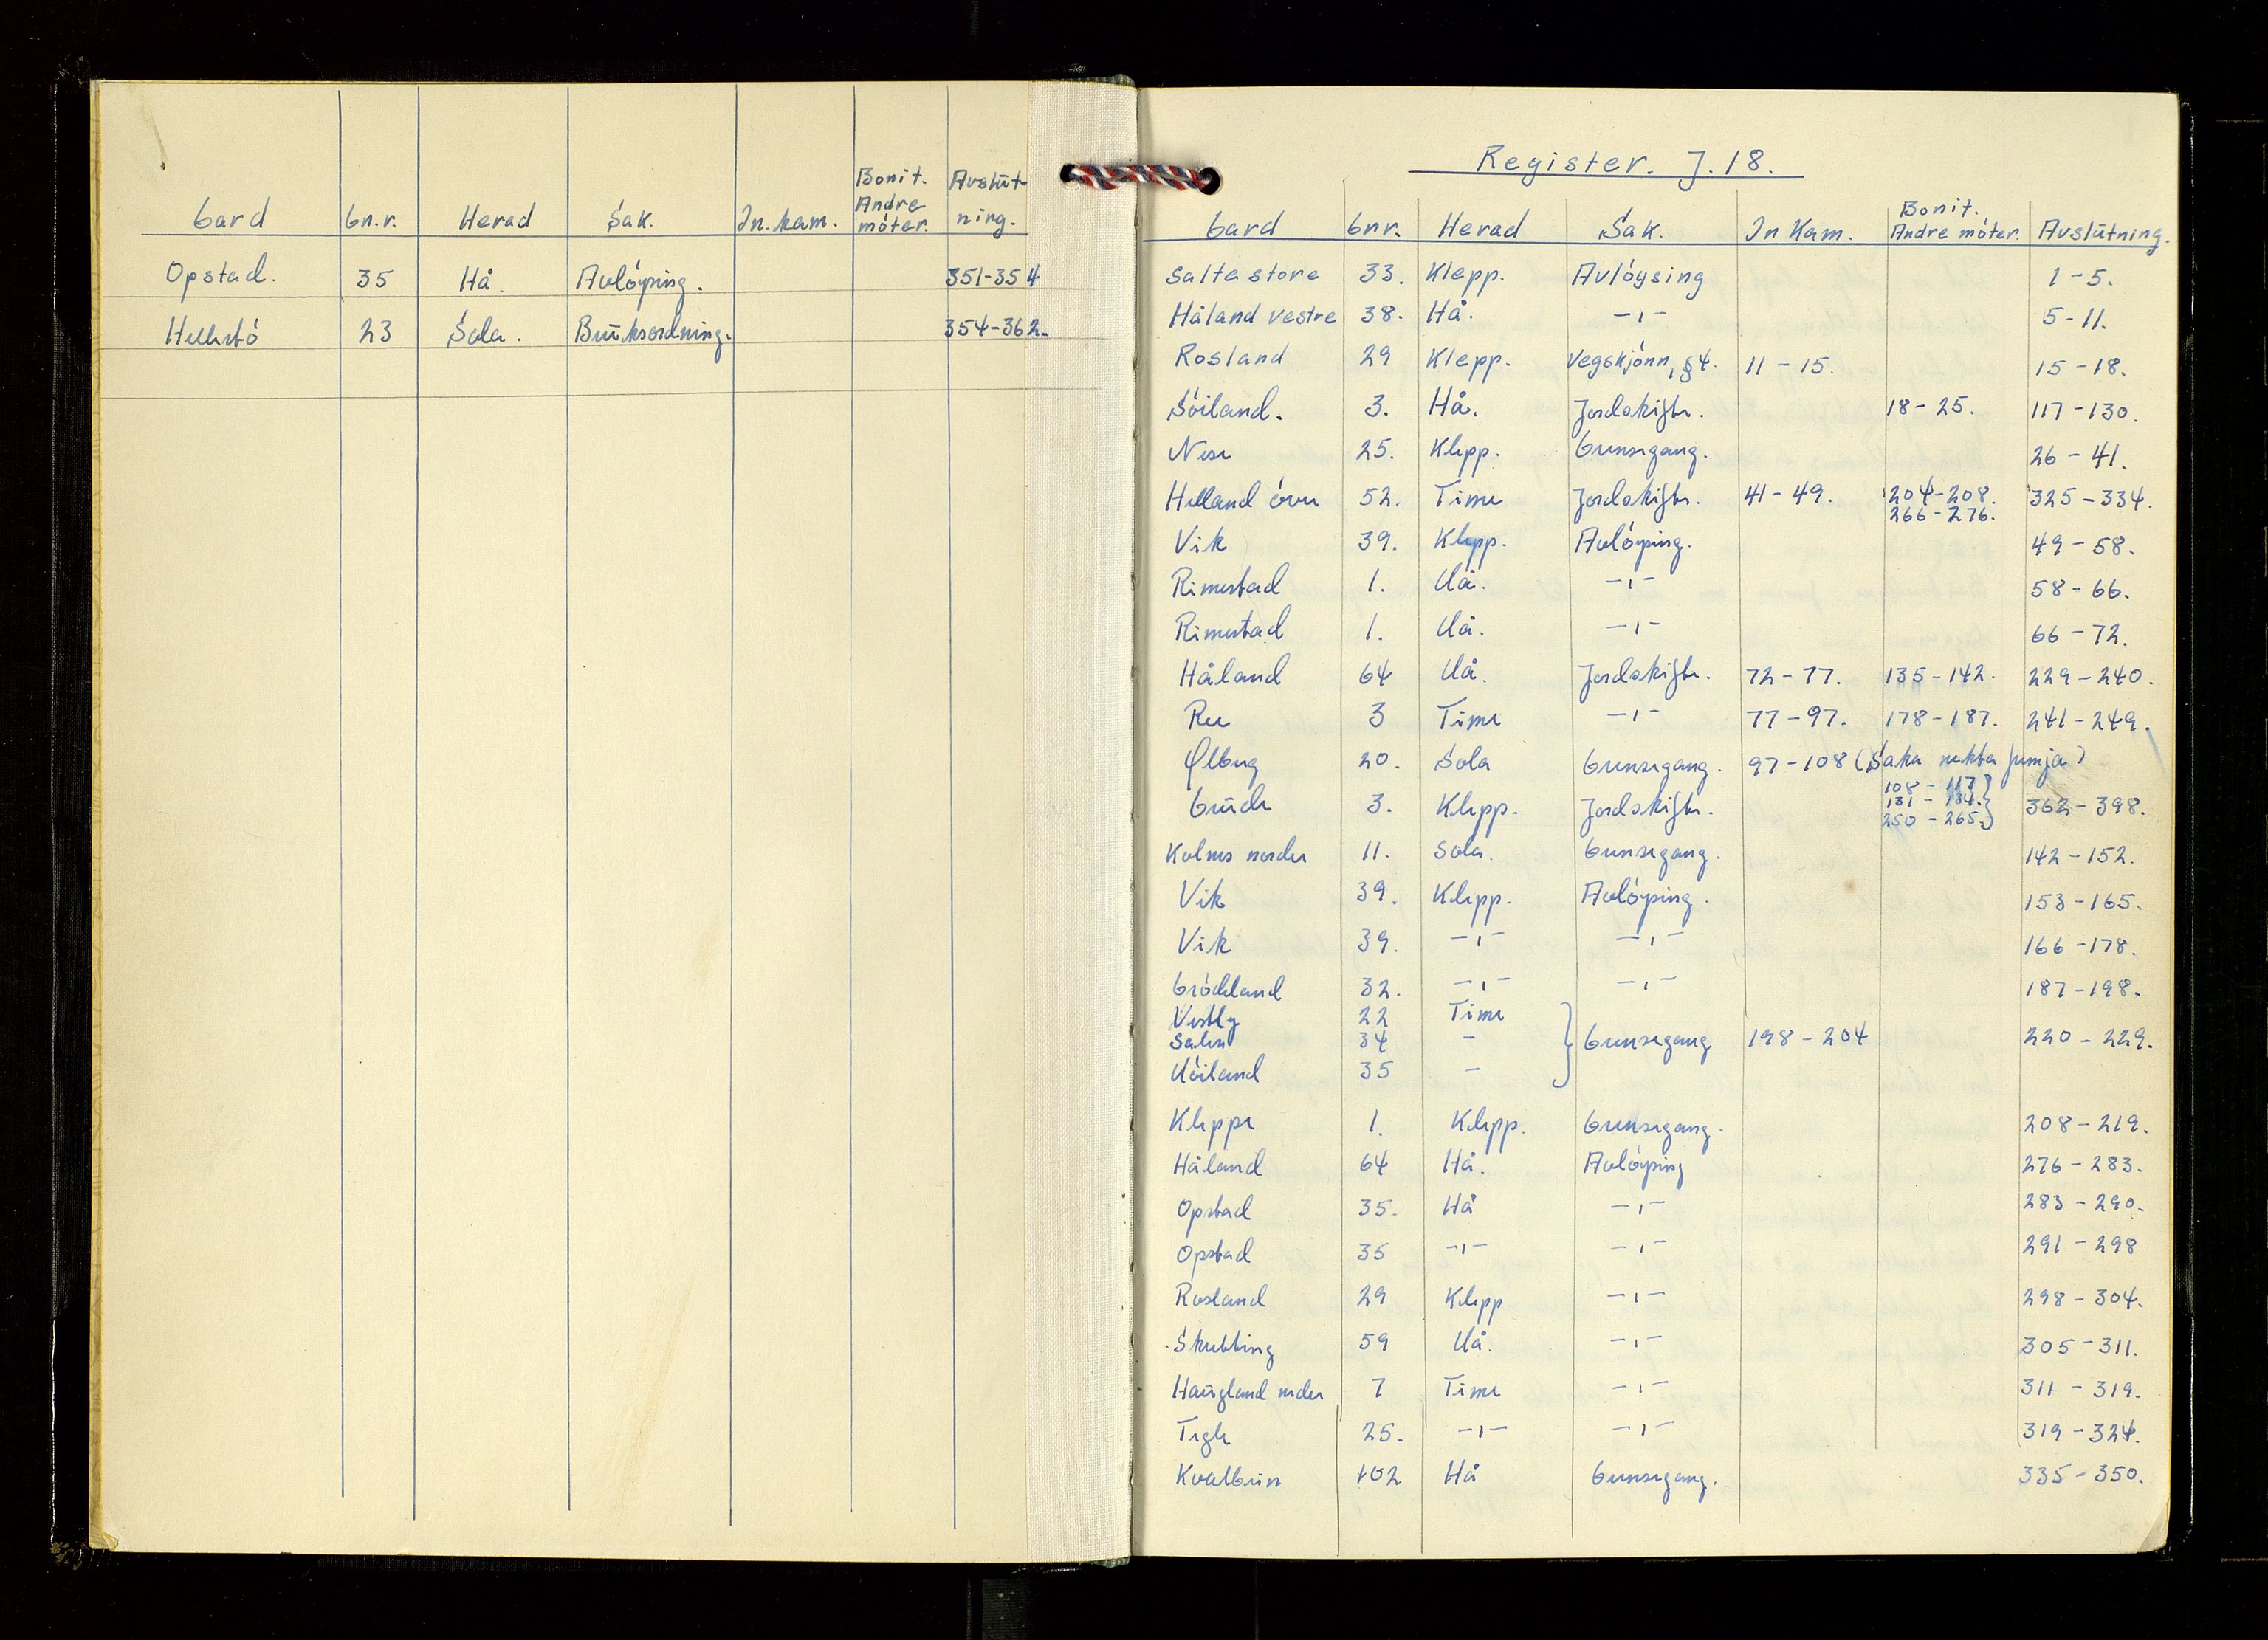 Gard Gn.r. Herad Sak. In.kam. Bonit. Andre möter. Avslūt-ning.
Opstad. 35 Hå. Avlöysing. 351-354
Hellestö 23 Sola. Brūksordning. 354-362.
Register. J. 18.
Gard Gnr. Herad Sak. In Kam. Bonit. Andre möter. Avslūtning.
Salte store 33. Klepp. Avlöysing 1-5.
Håland vestre 38. Hå. -"- 5-11.
Rosland 29 Klepp. Vegskjönn, §4. 11-15. 15-18.
Söiland. 3. Hå. Jordskifte. 18-25. 117-130.
Nese 25. Klepp. Grensegang. 26-41.
Helland övre 52. Time Jordskifte. 41-49. 204-208. 266-276. 325-334.
Vik 39. Klepp. Avlöysing. 49-58.
Rimestad 1. Hå. -"- 58-66.
Rimestad 1. Hå. -"- 66-72.
Håland 64 Hå. Jordskifte. 72-77. 135-142. 229-240.
Ree 3 Time -"- 77-97. 178-187. 241-249.
Ølberg 20. Sola Grensegang. 97-108 (Saka nekta fremja)
Grūde 3. Klepp. Jordskifte. 108-117 131-134. 250-265. 362-398.
Kolnes nordre 11. Sola. Grensegang. 142-152.
Vik 39. Klepp. Avlöysing. 153-165.
Vik 39. -"- -"- 166-178.
Grödeland 32. -"- -"- 187-198.
Vestly 22 Time
Salen 34 - Grensegang 198-204 220-229.
Höiland 35 -
Kleppe 1. Klepp. Grensegang. 208-219.
Håland 64 Hå. Avlöysing 276-283.
Opstad 35. Hå -"- 283-290.
Opstad 35 -"- -"- 291-298
Rosland 29 Klepp -"- 298-304.
Skretting 59 Hå. -"- 305-311.
Haūgland nedre 7 Time -"- 311-319.
Tegle 25. -"- -"- 319-324.
Kvalbein 102 Hå Grensegang. 335-350.